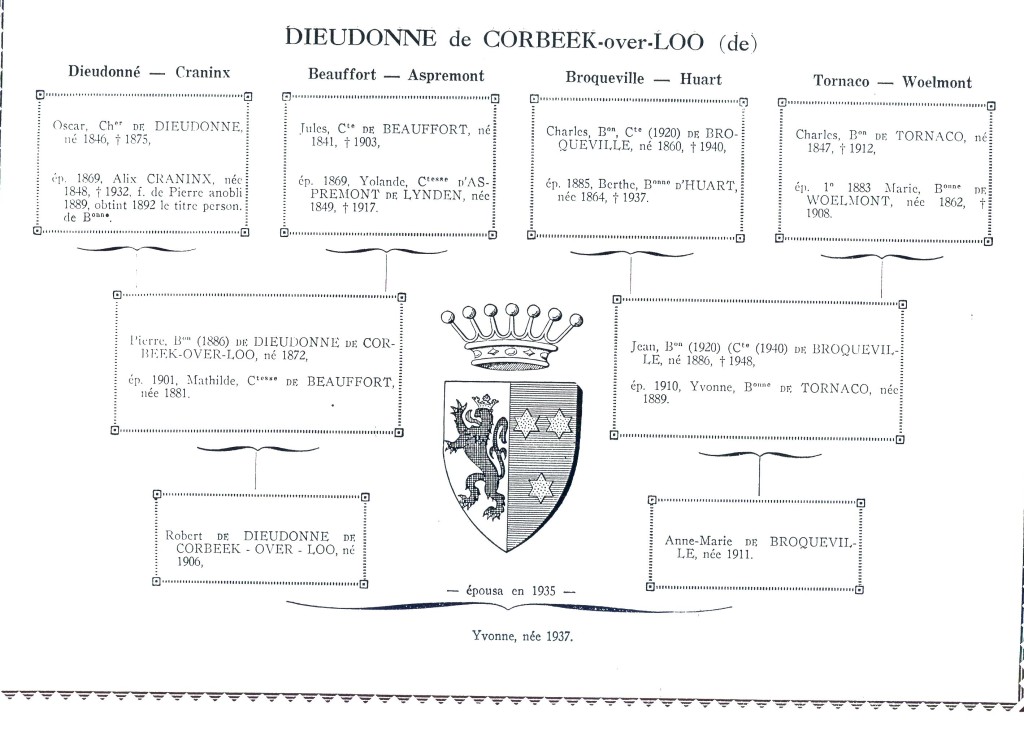 DIEUDONNE de CORBEEK-over-LOO (de)
Dieudonné — Craninx
Oscar, Cher DE DIEUDONNE,
né 1846, † 1875,
ép. 1869, Alix CRANINX, née
1848, † 1932, f. de Pierre anobli
1889, obtint 1892 le titre person.
de Bonne.
Beauffort — Aspremont
Jules, Cte DE BEAUFFORT, né
1841, † 1903,
ép. 1869, Yolande, Ctesse D'AS-
PREMONT DE LYNDEN, née
1849, † 1917.
Broqueville — Huart
Charles, Bon, Cte (1920) DE BRO-
QUEVILLE, né 1860, † 1940,
ép. 1885, Berthe, Bonne D'HUART,
née 1864, † 1937.
Tornaco — Woelmont
Charles, Bon DE TORNACO, né
1847, † 1912,
ép. 1º 1883 Marie, Bonne DE
WOELMONT, née 1862, †
1908.
Pierre, Bon (1886) DE DIEUDONNE DE COR-
BEEK-OVER-LOO, né 1872,
ép. 1901, Mathilde, Ctesse DE BEAUFFORT,
née 1881.
Jean, Bon (1920) (Cte (1940) DE BROQUEVIL-
LE, né 1886, † 1948,
ép. 1910, Yvonne, Bonne DE TORNACO, née
1889.
Robert DE DIEUDONNE DE
CORBEEK - OVER - LOO, né
1906,
Anne-Marie DE BROQUEVIL-
LE, née 1911.
— épousa en 1935 —
Yvonne, née 1937.